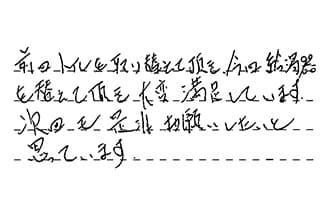 前回トイレを取り替えて頂き、今回給湯器
を替えて頂き大変満足しています。
次回も是非お願いしたいと
思っています。